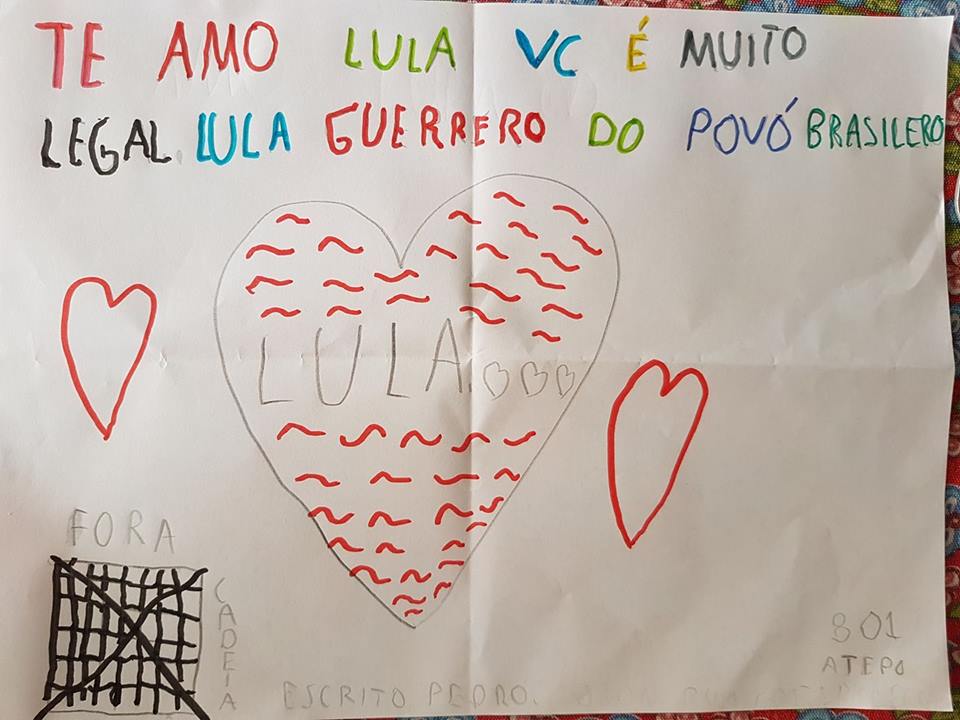 TE AMO LULA VC É MUITO
LEGAL. LULA GUERRERO DO POVÓ BRASILERO
LULA.
FORA
CADEIA
801
ATEPO
ESCRITO PEDRO.